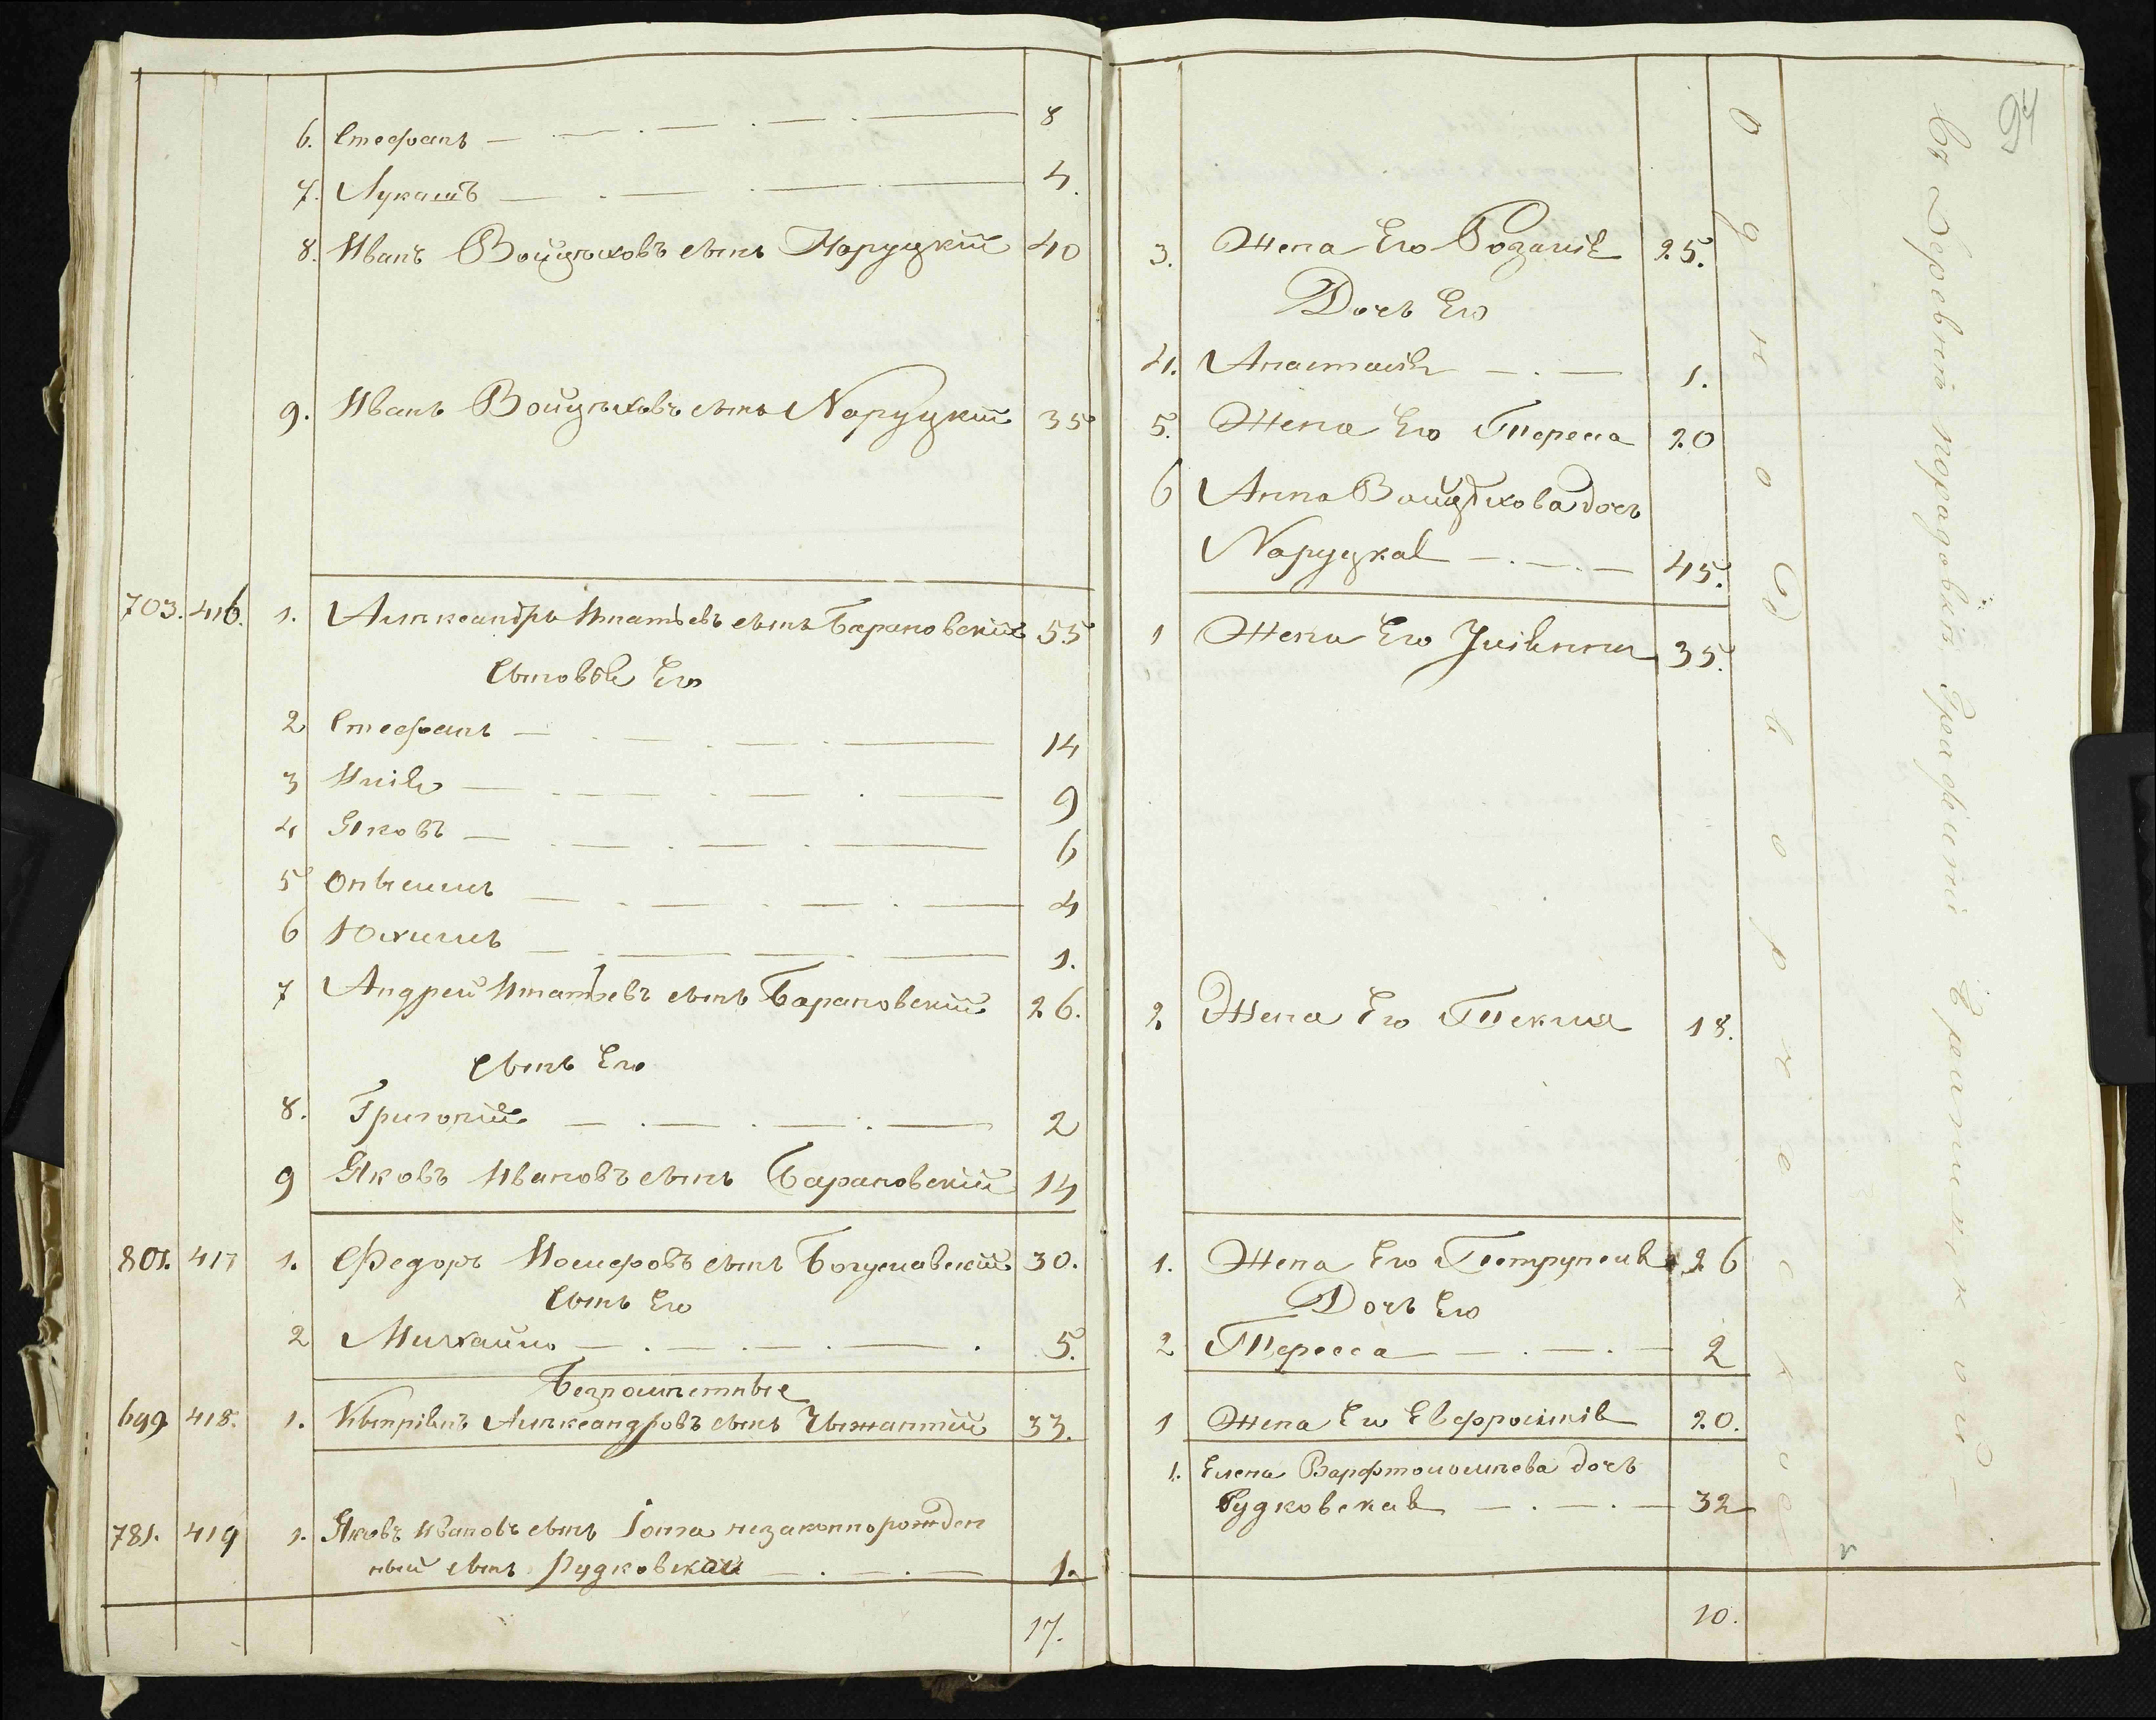 6. Стефанъ 8
7. Лукашъ 4.
8. Иванъ Войцѣховъ сынъ Наруцкій 40
9. Иванъ Войцѣховъ сынъ Наруцкій 35
703. 416. 1. Александръ Игнатьевъ сынъ Барановскій 55
Сыновья Его
2 Стефанъ 14
3 Илія 9
4 Яковъ 6
5 4
6 Юхимъ 1.
7 Андрей Игнатьевъ сынъ Барановскій 26.
сынъ Его
8. Григорій 2
9 Яковъ Ивановъ сынъ Барановскій 14
801. 417 1. Федоръ Іосифовъ сынъ Богуславскій 30.
Сынъ Его
2 Михайло 5.
699 418. 1. Александровъ сынъ 33.
781. 419 1. Яковъ Ивановъ сынъ незаконнорожден
ный сынъ Рудковской 1.
17.
94
3. Жена Его Розалія 25.
Дочь Его
4. Анастасія 1.
5. Жена Его Тереса 20
6 Анна Войцѣхова дочь
Наруцкая 45.
1 Жена Его Уліянна 35.
2 Жена Его Текля 18.
1. Жена Его Петрунеля 26
Дочь Его
2 Тересса 2
1 Жена Его Евфросинія 20.
1. Елена Варфтоломѣева дочь
Рудковская 32
10.
Однодворческое
Въ Деревнѣ